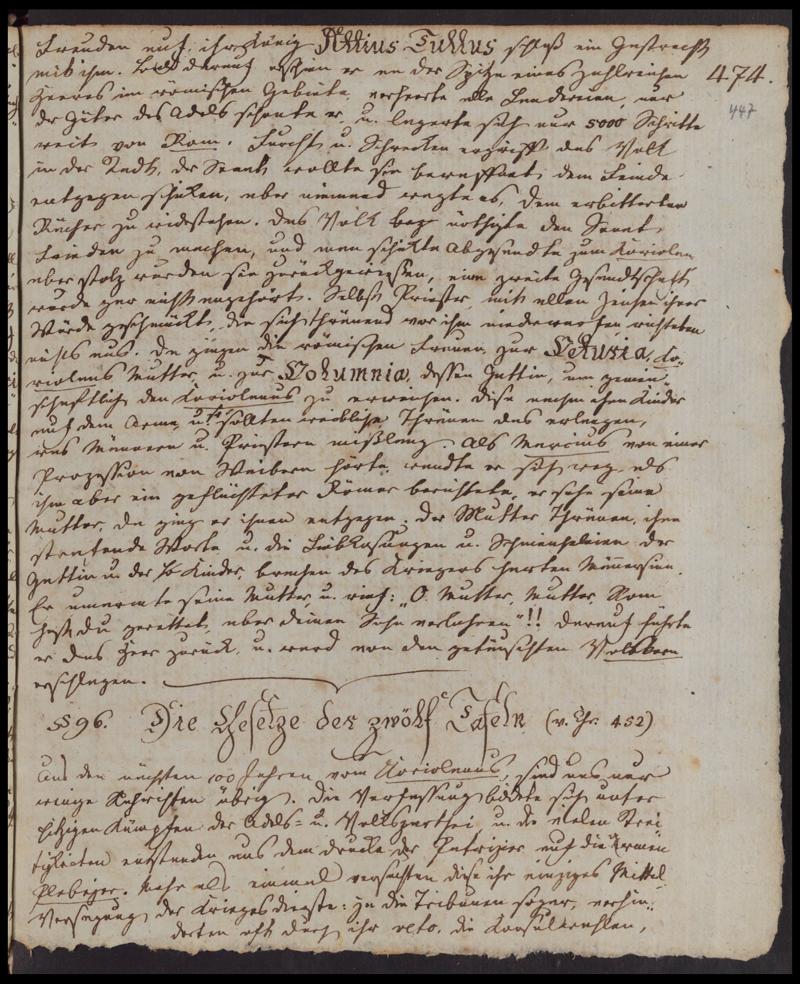 Freuden auf. ihr König Attius Tullus schloß ein Gastrecht
mit ihm. Bald darauf erschien er an der Spitze eines zahlreichen
474.
Heeres im römischen Gebiete, verheerte alle Ländereien, nur
447
der Güter des Adels schonte er, u. lagerte sich nur 5000 Schritte
weit von Rom. Furcht u. Schrecken ergriff das Volk
in der Stadt, der Senat wollte sie bewaffnet dem Feinde
entgegen schicken, aber niemand wagte es, dem erbitterten
Rächer zu widerstehen. Das Volk nöthigte den Senat,
Frieden zu machen, und man schickte Abgesandte zum Koriolan
aber stolz wurden sie zurückgewiesen, eine zweite Gesandtschaft
wurde gar nicht angehört. Selbst Priester, mit allen Zeichen ihrer
Würde geschmückt, die sich thränend vor ihm niederwarfen richteten
nichts aus. Da gingen die römischen Frauen zur Veturia, Ko-
riolans Mutter, u. zur Volumnia, dessen Gattin, um gemein-
schaftlich den Koriolanus zu erweichen. Diese nahm ihre Kinder
auf dem Arme, u. sollten weibliche Thränen das erlangen,
was Männern u. Priestern mißlang. Als Marcius von einer
Prozession von Weibern hörte, wandte er sich weg, als
ihm aber ein geflüchteter Römer berichtete, er sehe seine
Mutter, da ging er ihnen entgegen; der Mutter Thränen, ihre
strafende Worte u. die Liebkosungen u. Schmeicheleien der
Gattin u. der Kinder, brachen des Kriegers harten Männersinn.
Er umarmte seine Mutter, u. rief: „O Mutter, Mutter, Rom
hast du gerettet, aber deinen Sohn verlohren"!! Darauf führte
er das Heer zurück, u. ward von den getäuschten Volskern
erschlagen.
§96. Die Gesetze der zwölf Tafeln (v. Chr. 452)
Aus den nächsten 100 Jahren vom Koriolanus, sind uns nur
wenige Nachrichten übrig. Die Verfassung bildete sich unter
hitzigen Kämpfen der Adels= u. Volksparthei, u. die vielen Strei-
tigkeiten entstanden aus dem Drucke der Patrizier auf die Armen
Plebejer. Mehr als einmal versuchten diese ihr einziges Mittel
Versagung der Kriegsdienste: ja die Tribunen sogar, verhin-
derten oft durch ihr veto. die Konsulwahlen,